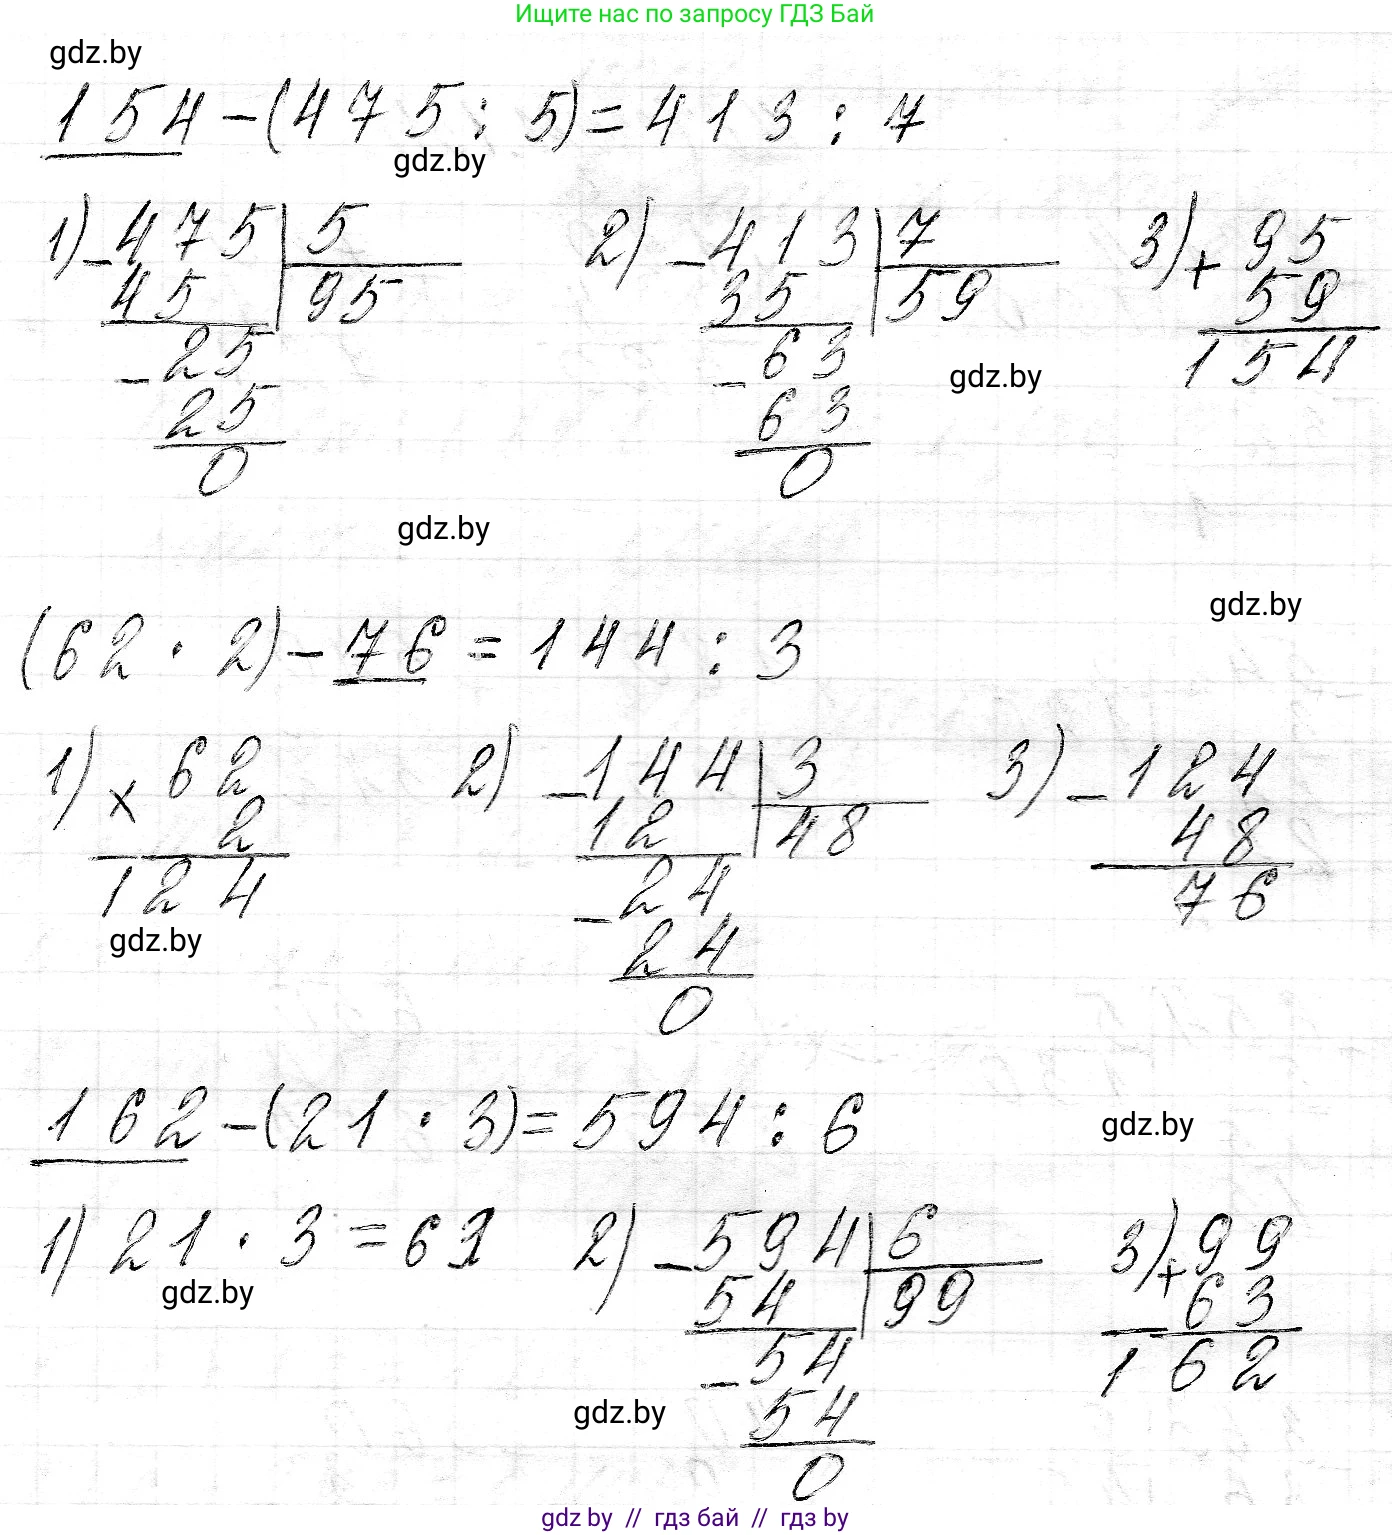 Ищите нас по запросу ГДЗ Бай
gdz.by
154-(475:5)=413:7
gdz.by
1) -475|5 2) -413|7 3) +95
45 95 35 59 59
-25 -63 154
gdz.by
25 63
0 0
gdz.by
gdz.by
(62·2)-76=144:3
1) x62 2) -144|3 3) -124
2 12 48 48
124 -24 76
gdz.by
24
0
162-(21·3)=594:6
gdz.by
1) 21·3=63 2) -594|6 3) +99
gdz.by
54 99 63
-54 162
gdz.by
54
0
gdz by // гдз бай // гдз by